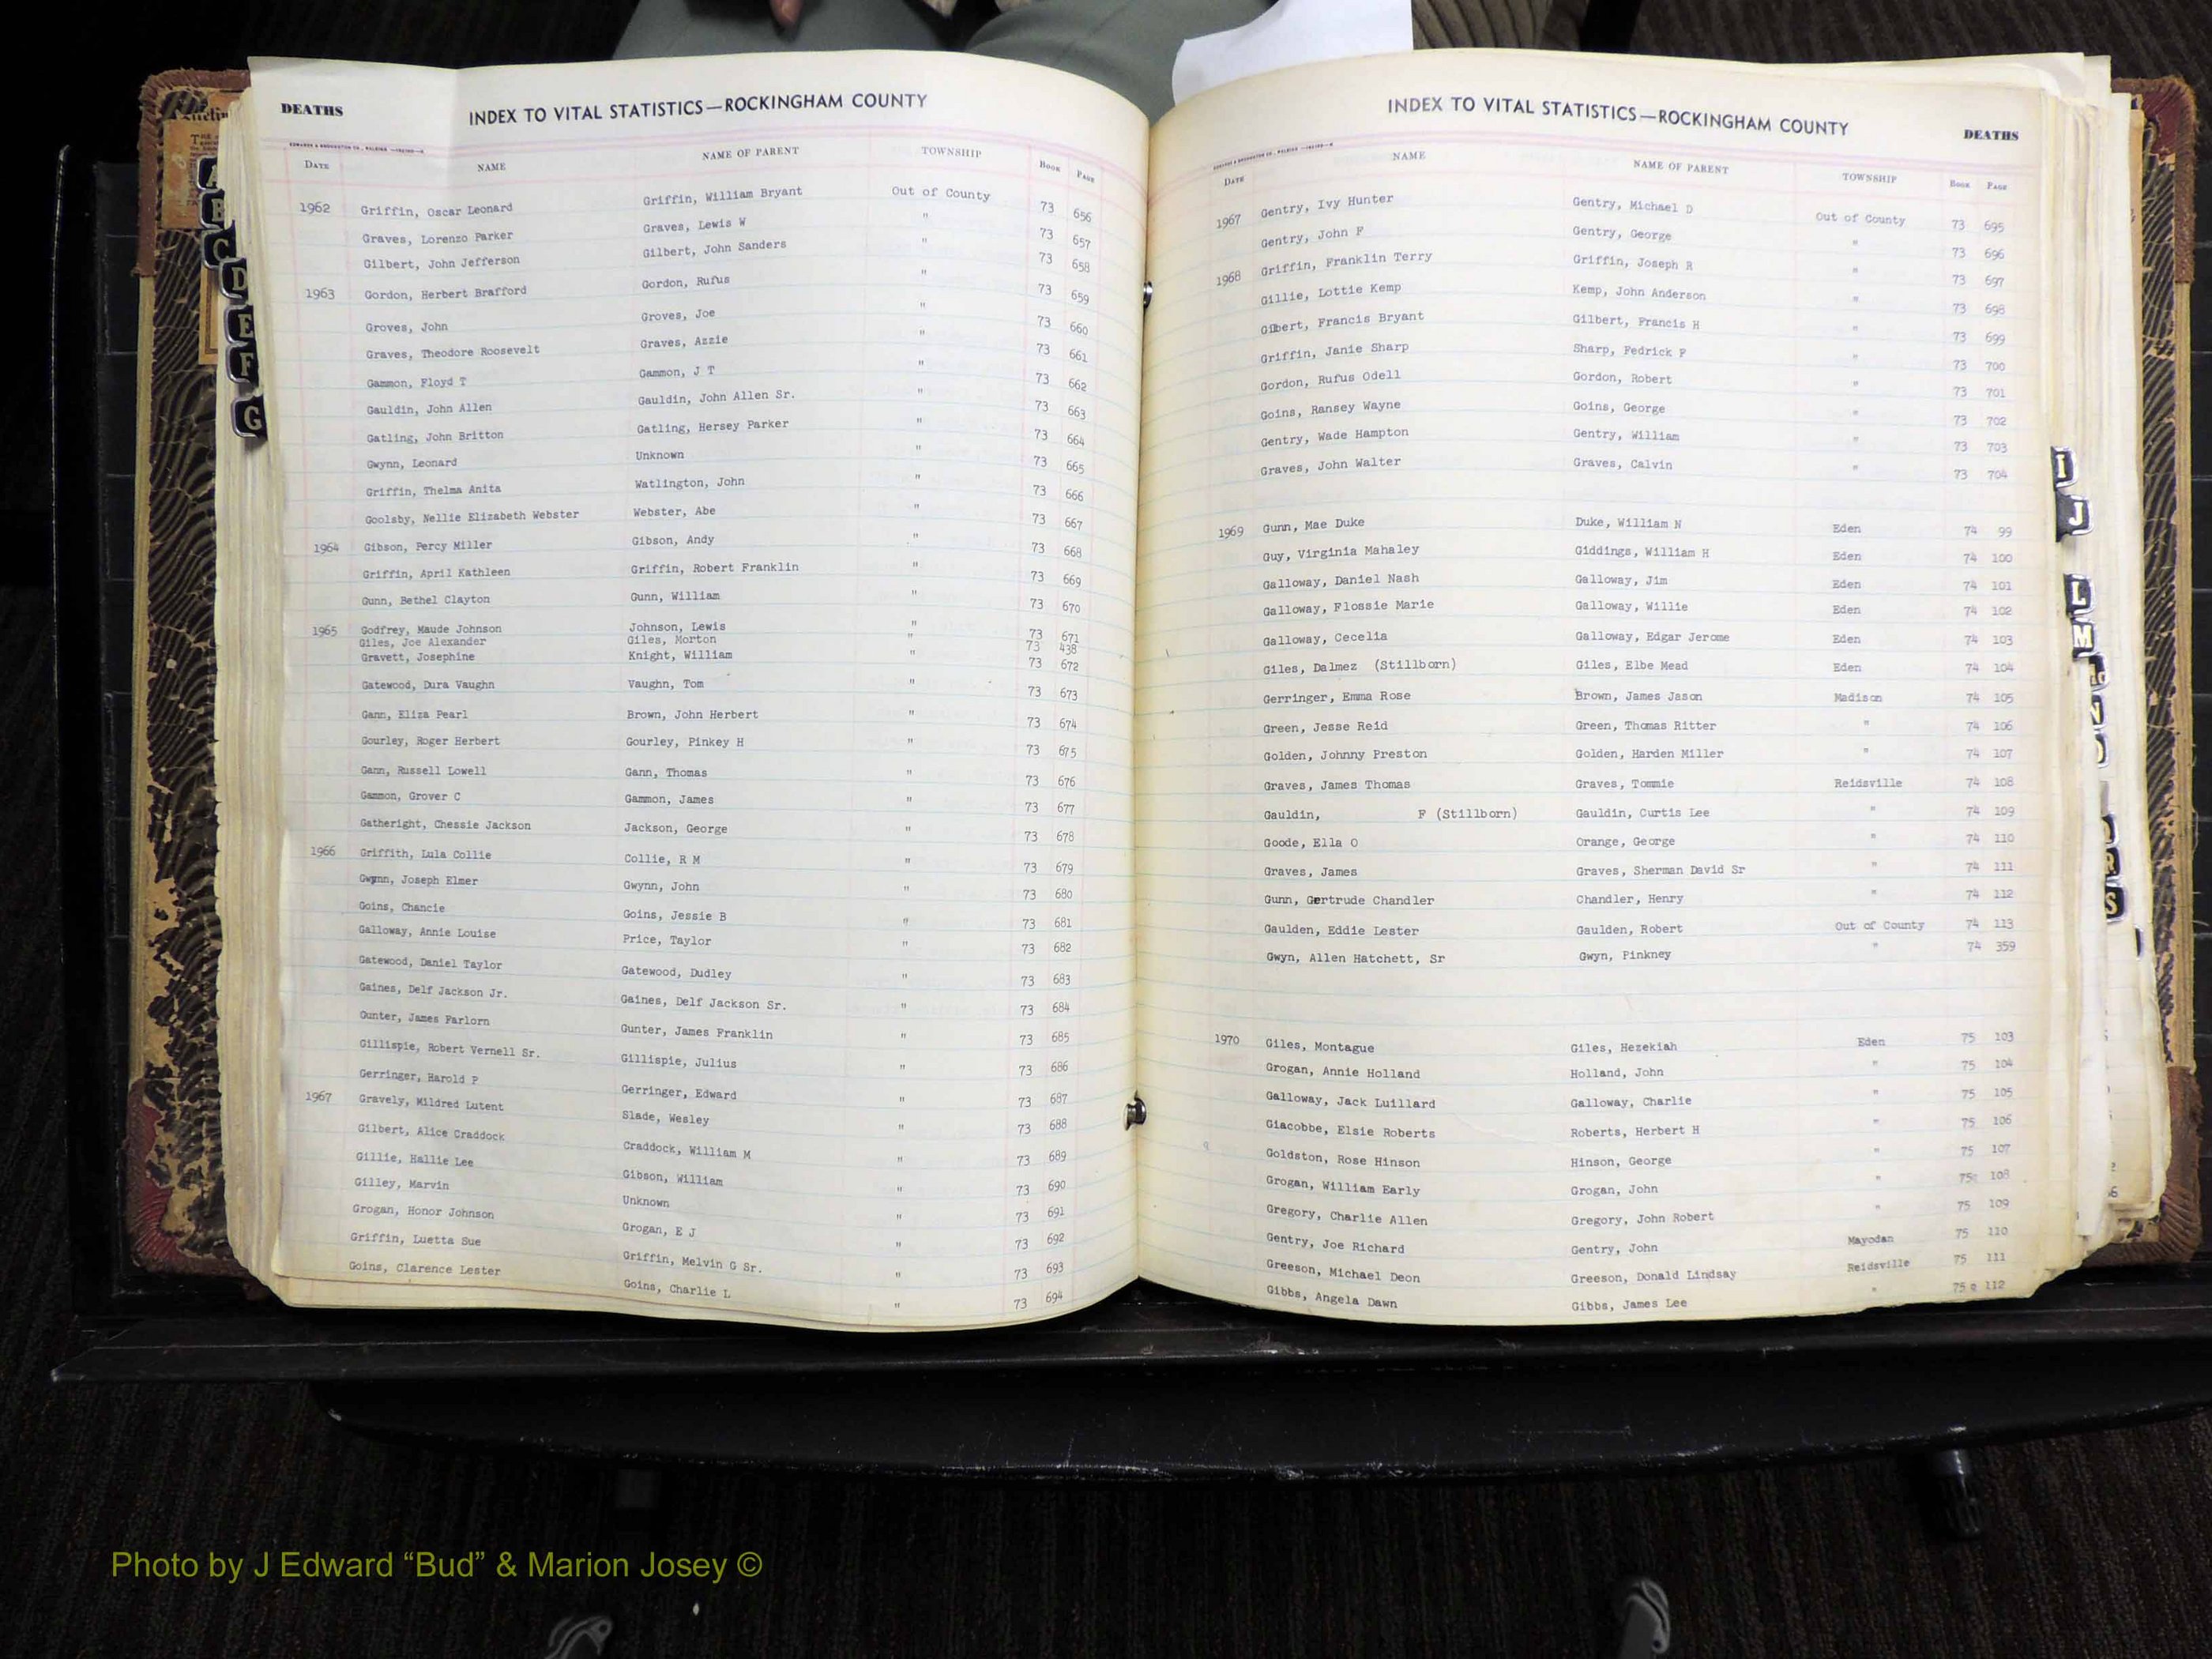 DEATHS INDEX TO VITAL STATISTICS—ROCKINGHAM COUNTY
DATE NAME NAME OF PARENT TOWNSHIP BOOK PAGE
1962 Griffin, Oscar Leonard Griffin, William Bryant Out of County 73 656
Graves, Lorenzo Parker Graves, Lewis W " 73 657
Gilbert, John Jefferson Gilbert, John Sanders " 73 658
1963 Gordon, Herbert Brafford Gordon, Rufus " 73 659
Groves, John Groves, Joe " 73 660
Graves, Theodore Roosevelt Graves, Azzie " 73 661
Gammon, Floyd T Gammon, J T " 73 662
Gauldin, John Allen Gauldin, John Allen Sr. " 73 663
Gatling, John Britton Gatling, Hersey Parker " 73 664
Gwynn, Leonard Unknown " 73 665
Griffin, Thelma Anita Watlington, John " 73 666
Goolsby, Nellie Elizabeth Webster Webster, Abe " 73 667
1964 Gibson, Percy Miller Gibson, Andy " 73 668
Griffin, April Kathleen Griffin, Robert Franklin " 73 669
Gunn, Bethel Clayton Gunn, William " 73 670
1965 Godfrey, Maude Johnson Johnson, Lewis " 73 671
Giles, Joe Alexander Giles, Morton " 73 438
Gravett, Josephine Knight, William " 73 672
Gatewood, Dura Vaughn Vaughn, Tom " 73 673
Gann, Eliza Pearl Brown, John Herbert " 73 674
Gourley, Roger Herbert Gourley, Pinkey H " 73 675
Gann, Russell Lowell Gann, Thomas " 73 676
Gammon, Grover C Gammon, James " 73 677
Gatheright, Chessie Jackson Jackson, George " 73 678
1966 Griffith, Lula Collie Collie, R M " 73 679
Gwynn, Joseph Elmer Gwynn, John " 73 680
Goins, Chancie Goins, Jessie B " 73 681
Galloway, Annie Louise Price, Taylor " 73 682
Gatewood, Daniel Taylor Gatewood, Dudley " 73 683
Gaines, Delf Jackson Jr. Gaines, Delf Jackson Sr. " 73 684
Gunter, James Farlorn Gunter, James Franklin " 73 685
Gillispie, Robert Vernell Sr. Gillispie, Julius " 73 686
Gerringer, Harold P Gerringer, Edward " 73 687
1967 Gravely, Mildred Lutent Slade, Wesley " 73 688
Gilbert, Alice Craddock Craddock, William M " 73 689
Gillie, Hallie Lee Gibson, William " 73 690
Gilley, Marvin Unknown " 73 691
Grogan, Honor Johnson Grogan, E J " 73 692
Griffin, Luetta Sue Griffin, Melvin G Sr. " 73 693
Goins, Clarence Lester Goins, Charlie L " 73 694
INDEX TO VITAL STATISTICS—ROCKINGHAM COUNTY DEATHS
DATE NAME NAME OF PARENT TOWNSHIP BOOK PAGE
1967 Gentry, Ivy Hunter Gentry, Michael D Out of County 73 695
Gentry, John F Gentry, George " 73 696
1968 Griffin, Franklin Terry Griffin, Joseph R " 73 697
Gillie, Lottie Kemp Kemp, John Anderson " 73 698
Gilbert, Francis Bryant Gilbert, Francis H " 73 699
Griffin, Janie Sharp Sharp, Fedrick F " 73 700
Gordon, Rufus Odell Gordon, Robert " 73 701
Goins, Ransey Wayne Goins, George " 73 702
Gentry, Wade Hampton Gentry, William " 73 703
Graves, John Walter Graves, Calvin " 73 704
1969 Gunn, Mae Duke Duke, William N Eden 74 99
Guy, Virginia Mahaley Giddings, William H Eden 74 100
Galloway, Daniel Nash Galloway, Jim Eden 74 101
Galloway, Flossie Marie Galloway, Willie Eden 74 102
Galloway, Cecelia Galloway, Edgar Jerome Eden 74 103
Giles, Dalmez (Stillborn) Giles, Elbe Mead Eden 74 104
Gerringer, Emma Rose Brown, James Jason Madison 74 105
Green, Jesse Reid Green, Thomas Ritter " 74 106
Golden, Johnny Preston Golden, Harden Miller " 74 107
Graves, James Thomas Graves, Tommie Reidsville 74 108
Gauldin, F (Stillborn) Gauldin, Curtis Lee " 74 109
Goode, Ella O Orange, George " 74 110
Graves, James Graves, Sherman David Sr " 74 111
Gunn, Gertrude Chandler Chandler, Henry " 74 112
Gaulden, Eddie Lester Gaulden, Robert Out of County 74 113
Gwyn, Allen Hatchett, Sr Gwyn, Pinkney " 74 359
1970 Giles, Montague Giles, Hezekiah Eden 75 103
Grogan, Annie Holland Holland, John " 75 104
Galloway, Jack Luillard Galloway, Charlie " 75 105
Giacobbe, Elsie Roberts Roberts, Herbert H " 75 106
Goldston, Rose Hinson Hinson, George " 75 107
Grogan, William Early Grogan, John " 75 108
Gregory, Charlie Allen Gregory, John Robert " 75 109
Gentry, Joe Richard Gentry, John Mayodan 75 110
Greeson, Michael Deon Greeson, Donald Lindsay Reidsville 75 111
Gibbs, Angela Dawn Gibbs, James Lee " 75 112
A
B
C
D
E
F
G
I
J
L
M
N
O
R
S
Photo by J Edward “Bud” & Marion Josey ©